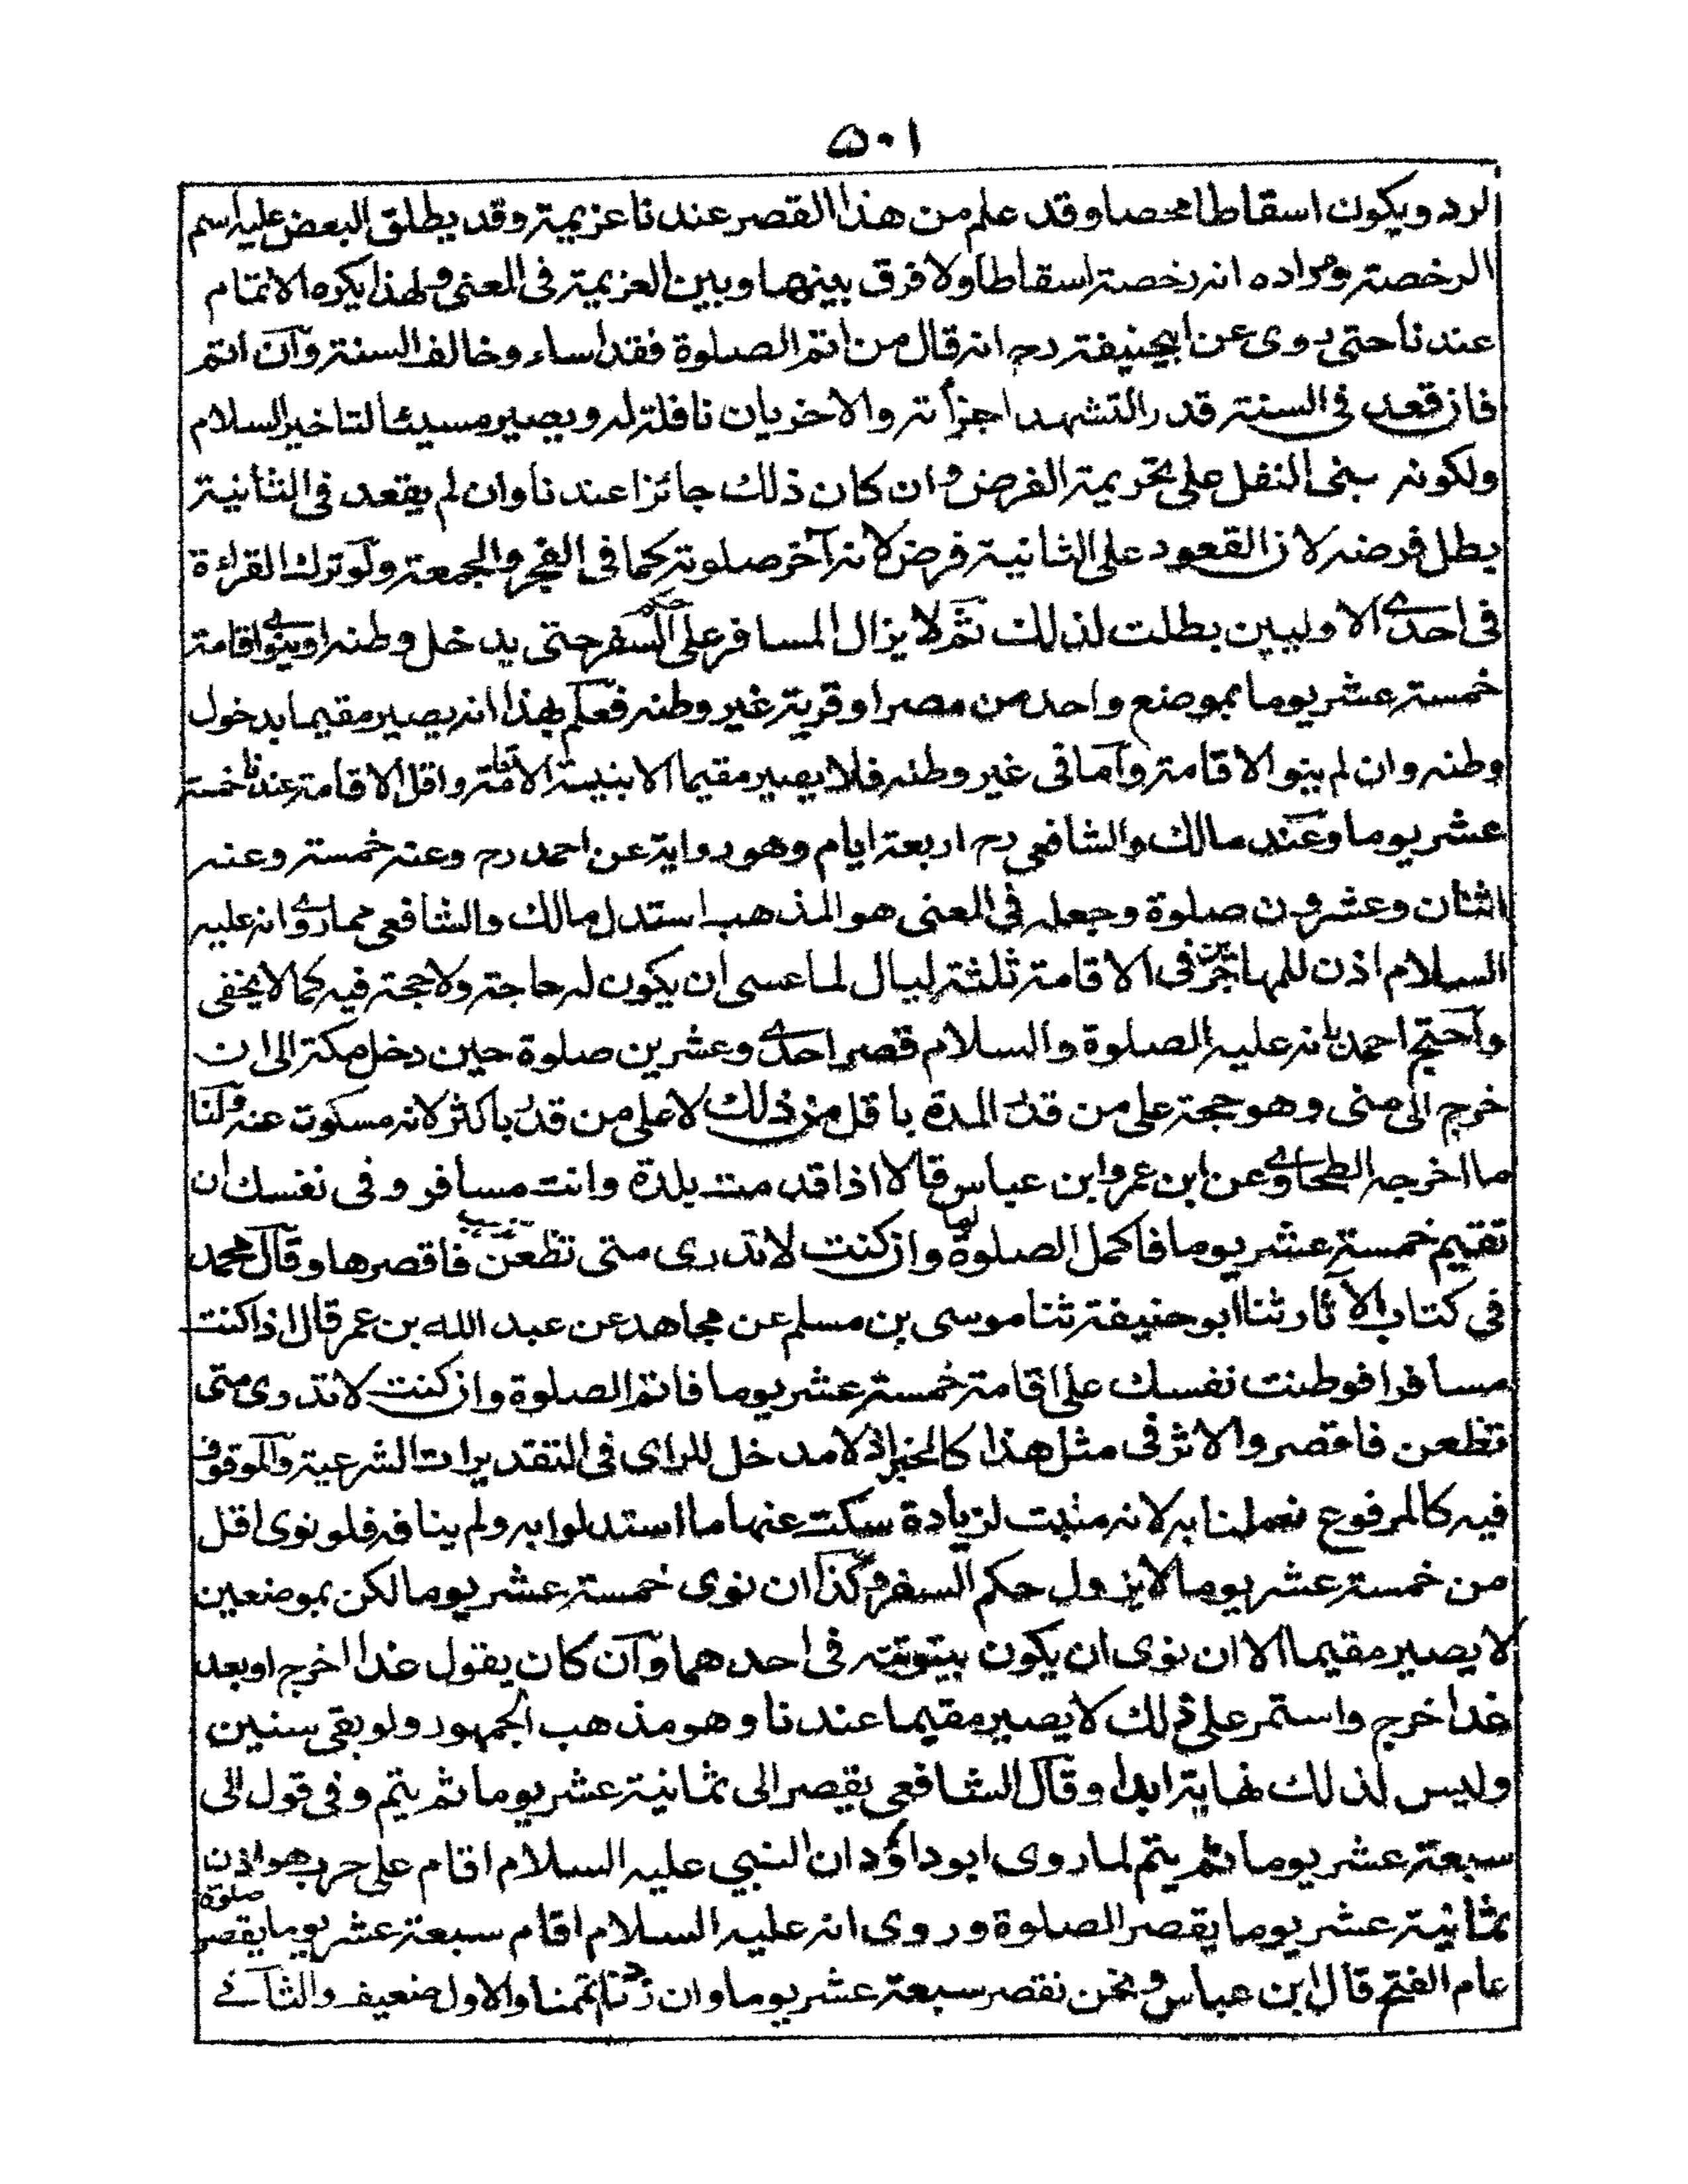 ٥٠١
الرد ويكون اسقاطا محصا وقد علم من هذا القصر عندنا عزيمة وقد يطلق البعض عليه اسم
الرخصة ومراده انه رخصة اسقاطا ولا فرق بينهما وبين العزيمة فى المعنى ولهذا يكره الاتمام
عندنا حتى روى عن ابيحنيفة رح انه قال من اتم الصلوة فقد اساء وخالف السنة وان اتم
فان قعد فى السنة قدر التشهد اجزأته والاخريان نافلة له ويصير مسيئا لتاخير السلام
ولكونه بنى النفل على تحريمة الفرض وان كان ذلك جائزا عندنا وان لم يقعد فى الثانية
بطل فرضه لان القعود على الثانية فرض لانه آخر صلوته كما فى الفجر والجمعة ولو ترك القراءة
فى احدى الاوليين بطلت لذلك ثم لا يزال المسافر على حكم السفر حتى يدخل وطنه او ينوى اقامة
خمسة عشر يوما بموضع واحد من مصر او قرية غير وطنه فعلم بهذا انه يصير مقيما بدخول
وطنه وان لم ينو الاقامة وأما فى غير وطنه فلا يصير مقيما الا بنية الاقامة واقل الاقامة عندنا خمسة
عشر يوما وعند مالك والشافعى رح اربعة ايام وهو رواية عن احمد رح وعنه خمسة وعنه
اثنان وعشرون صلوة وجعله فى المعنى هو المذهب استدل مالك والشافعى مما روى انه عليه
السلام اذن للمهاجرين فى الاقامة ثلثة ليال لما عسى ان يكون له حاجة ولا حجة فيه كما لا يخفى
وآحتج احمد بانه عليه الصلوة والسلام قصر احدى وعشرين صلوة حين دخل مكة الى ان
خرج الى منى وهو حجة على من قدر المدة باقل من ذلك لا على من قدر باكثر لانه مسكوت عنه ولنا
ما اخرجه الطحاوى عن ابن عمر وابن عباس قالا اذا قدمت بلدة وانت مسافر وفى نفسك ان
تقيم خمسة عشر يوما فاكمل الصلوة بها وان كنت لا تدرى متى تظعن فاقصرها وقال محمد
فى كتاب الآثار ثنا ابو حنيفة ثنا موسى بن مسلم عن مجاهد عن عبد الله بن عمر قال اذا كنت
مسافرا فوطنت نفسك على اقامة خمسة عشر يوما فاتم الصلوة وان كنت لا تدرى متى
تظعن فاقصر والاثر فى مثل هذا كالخبر اذ لا مدخل للراى فى التقديرات الشرعية والموقوف
فيه كالمرفوع فعملنا به لانه مثبت لزيادة سكت عنها ما استدلوا به ولم ينافه فلو نوى اقل
من خمسة عشر يوما لا يزول حكم السفر وكذا ان نوى خمسة عشر يوما لكن بموضعين
لا يصير مقيما الا ان نوى ان يكون بيتوتته فى احدهما وان كان يقول غدا اخرج او بعد
غدا خرج واستمر على ذلك لا يصير مقيما عندنا وهو مذهب الجمهور ولو بقى سنين
وليس لذلك نهاية ابدا وقال الشافعى يقصر الى ثمانية عشر يوما ثم يتم وفى قول الى
سبعة عشر يوما ثم يتم لما روى ابو داؤد ان النبي عليه السلام اقام على حرب هواذن
ثمانية عشر يوما يقصر الصلوة وروى انه عليه السلام اقام سبعة عشر يوما يقصر صلوة
عام الفتح قال ابن عباس ونحن نقصر سبعة عشر يوما وان زدنا اتممنا والاول ضعيف والثانى